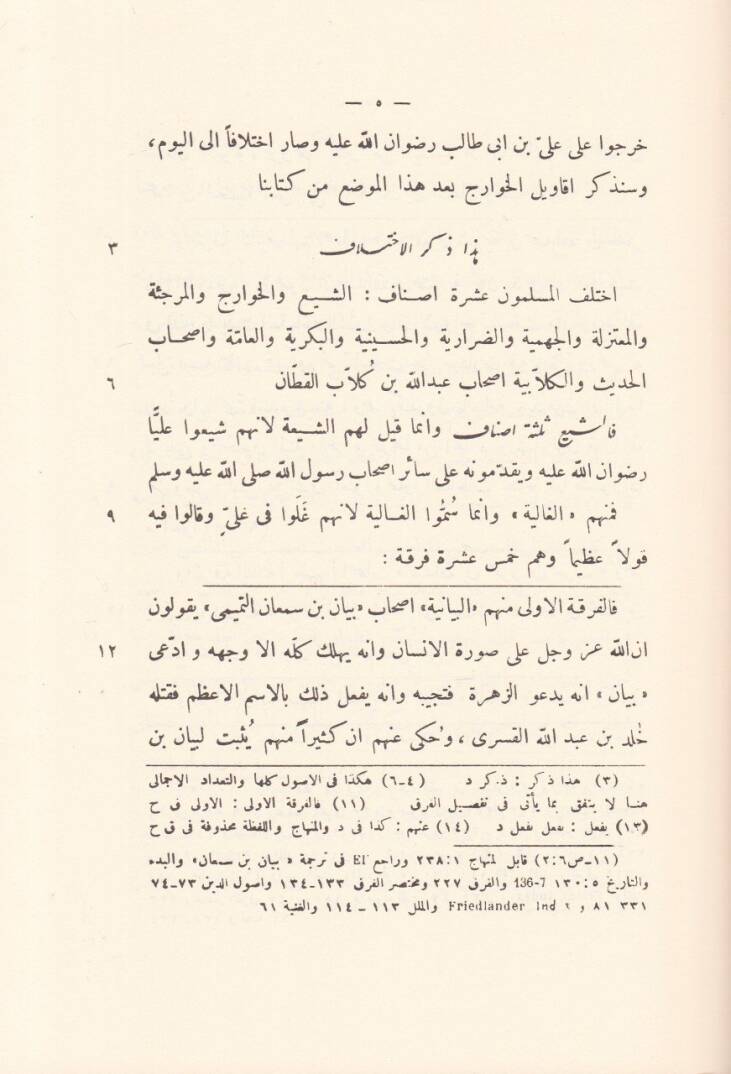 — ٥ —
خرجوا على علىّ بن ابى طالب رضوان الله عليه وصار اختلافاً الى اليوم،
وسنذكر اقاويل الخوارج بعد هذا الموضع من كتابنا
هذا ذكر الاختلاف ٣
اختلف المسلمون عشرة اصناف : الشيع والخوارج والمرجئة
والمعتزلة والجهمية والضرارية والحسينية والبكرية والعامّة واصحاب
الحديث والكلاّبية اصحاب عبدالله بن كُلاّب القطّان ٦
فالشيع ثلثة اصناف وانما قيل لهم الشيعة لانهم شيعوا عليًّا
رضوان الله عليه ويقدّمونه على سائر اصحاب رسول الله صلى الله عليه وسلم
فمنهم «الغالية» وانما سُمُّوا الغالية لانهم غَلَوا فى علىٍّ وقالوا فيه ٩
قولاً عظيماً وهم خمس عشرة فرقة :
فالفرقة الاولى منهم «البيانية» اصحاب «بيان بن سمعان التميمى» يقولون
ان الله عز وجل على صورة الانسان وانه يهلك كلّه الا وجهه و ادّعى ١٢
«بيان» انه يدعو الزهرة فتجيبه وانه يفعل ذلك بالاسم الاعظم فقتله
خٰلد بن عبد الله القسرى، وحُكى عنهم ان كثيراً منهم يُثبت لبيان بن
(٣) هذا ذكر : ذكر د (٤-٦) هكذا فى الاصول كلها والتعداد الاجمالى
هنا لا يتفق بما يأتى فى تفصيل الفرق (١١) فالفرقة الاولى : الاولى ق ح
(١٣) يفعل : نفعل بفعل د (١٤) عنهم : كذا فى د والمنهاج واللفظة محذوفة فى ق ح
(١١-ص٦:٢) قابل المنهاج ٢٣٨:١ وراجع EI فى ترجمة «بيان بن سمعان» والبدء
والتاريخ ١٣٠:٥ 136-7 والفرق ٢٢٧ ومختصر الفرق ١٣٣-١٣٤ واصول الدين ٧٣-٧٤
٣٣١ و ٨١ Friedlander Ind والملل ١١٣ - ١١٤ والغنية ٦١